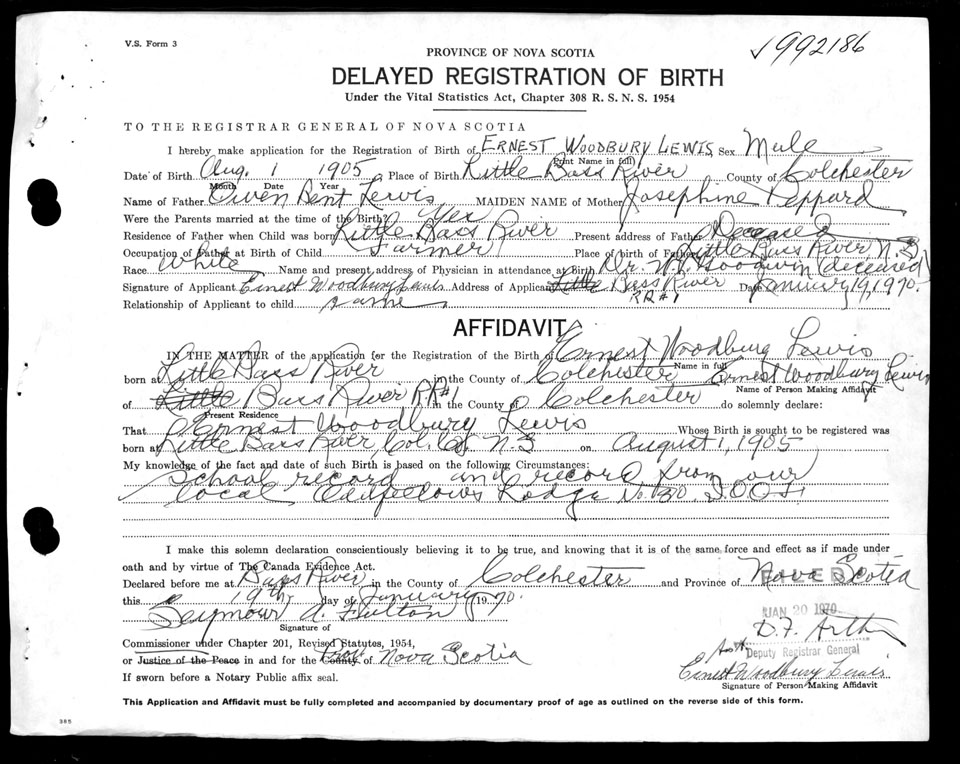 V.S. Form 3
√992186
PROVINCE OF NOVA SCOTIA
DELAYED REGISTRATION OF BIRTH
Under the Vital Statistics Act, Chapter 308 R. S. N. S. 1954
TO THE REGISTRAR GENERAL OF NOVA SCOTIA
I hereby make application for the Registration of Birth of ERNEST WOODBURY LEWIS Sex Male
(Print Name in full)
Date of Birth Aug. 1 1905 Place of Birth Little Bass River County of Colchester
Month Date Year
Name of Father Owen Bent Lewis MAIDEN NAME of Mother Josephine Peppard
Were the Parents married at the time of the Birth? Yes
Residence of Father when Child was born Little Bass River Present address of Father Deceased
Occupation of Father at Birth of Child Farmer Place of birth of Father Little Bass River N.S
Race White Name and present address of Physician in attendance at Birth Dr. Goodwin (deceased)
Signature of Applicant Ernest Woodbury Lewis Address of Applicant Little Bass River Date January 19, 1970.
RR#1
Relationship of Applicant to child same
AFFIDAVIT
IN THE MATTER of the application for the Registration of the Birth of Ernest Woodbury Lewis
Name in full
born at Little Bass River in the County of Colchester Ernest Woodbury Lewis
Name of Person Making Affidavit
of Little Bass River RR#1 in the County of Colchester do solemnly declare:
Present Residence
That Ernest Woodbury Lewis Whose Birth is sought to be registered was
born at Little Bass River, Col. Co. N.S on August 1, 1905
My knowledge of the fact and date of such Birth is based on the following Circumstances:
School record and record from our
local Oddfellows Lodge No. 130 I.O.O.F.
I make this solemn declaration conscientiously believing it to be true, and knowing that it is of the same force and effect as if made under
oath and by virtue of The Canada Evidence Act.
Declared before me at Bass River in the County of Colchester and Province of Nova Scotia
this 19th day of January 1970.
JAN 20 1970
Seymour A Fulton
Signature of
D.F. Arth
Commissioner under Chapter 201, Revised Statutes, 1954,
Deputy Registrar General
or Justice of the Peace in and for the County of Nova Scotia
Ernest Woodbury Lewis
If sworn before a Notary Public affix seal.
Signature of Person Making Affidavit
This Application and Affidavit must be fully completed and accompanied by documentary proof of age as outlined on the reverse side of this form.
385